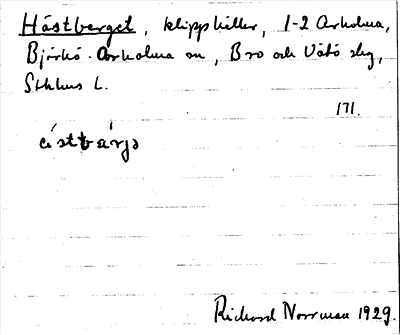 Hästberget, klippshiller, 1-2 Arholma,
Björkö-Arholma sn, Bro och Vätö slg,
Sthlms L.
171.
Richard Norrman 1929.